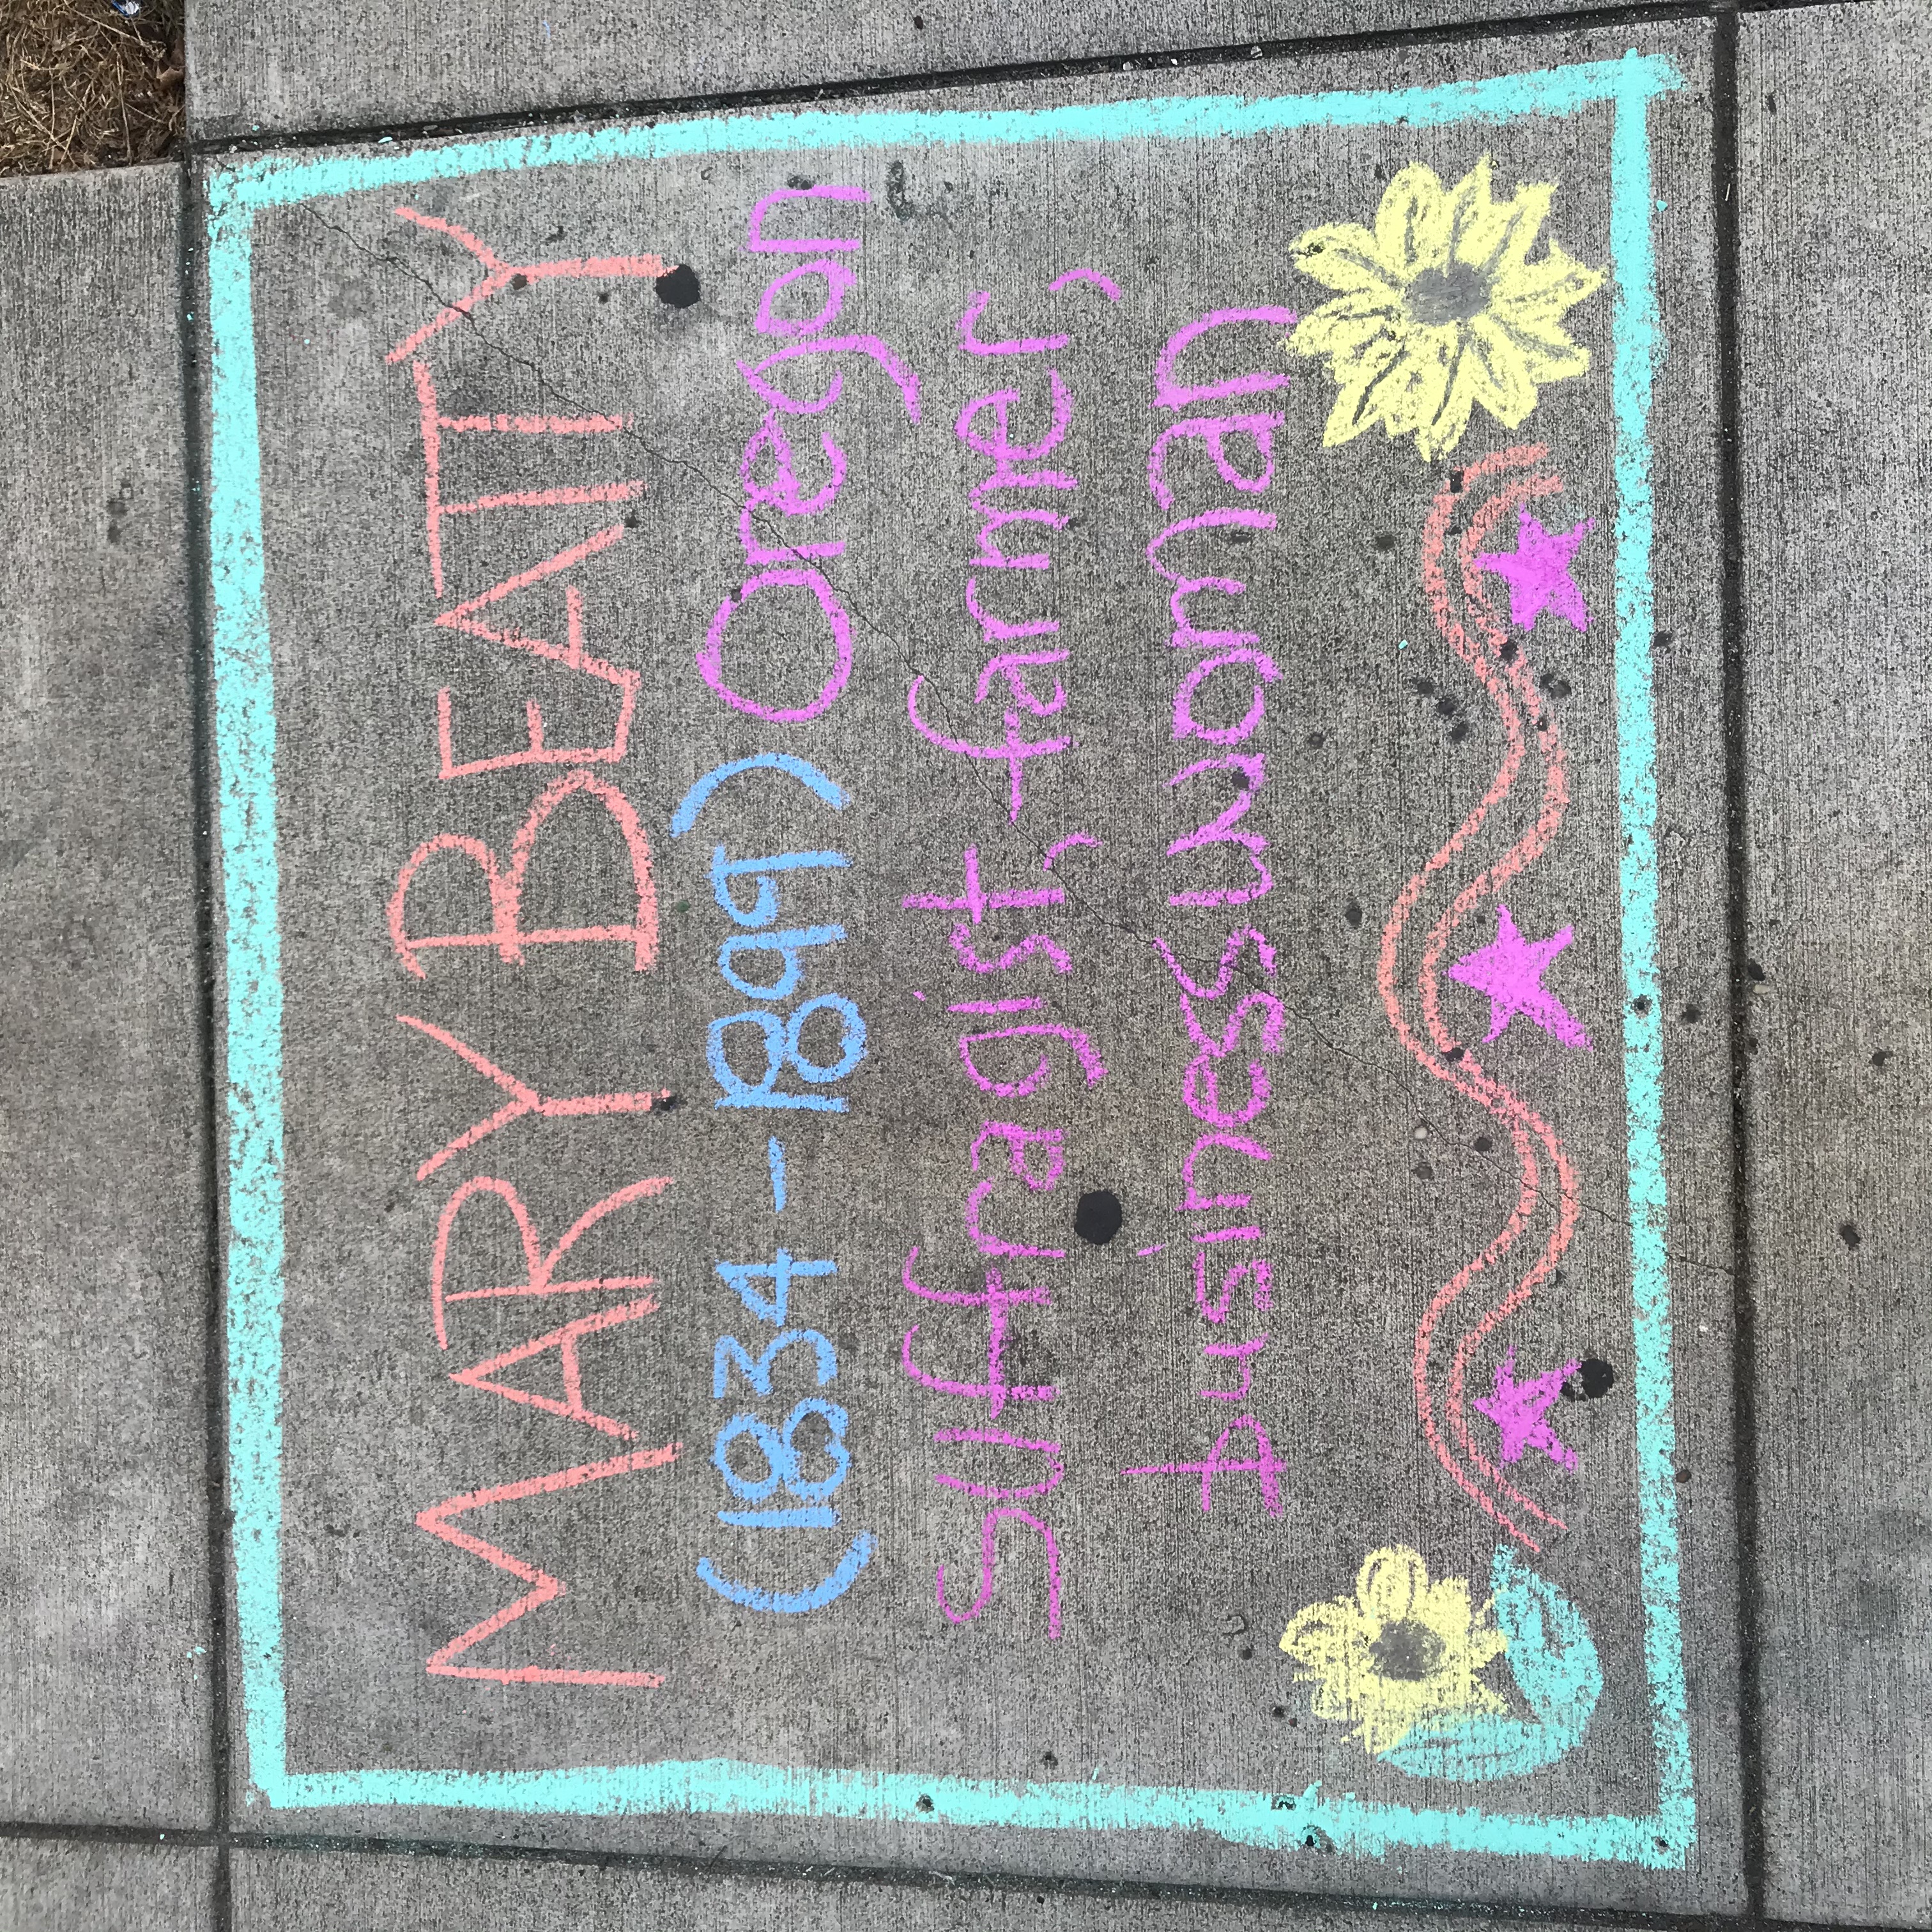 MARY BEATTY
(1834-1899) Oregon
suffragist, farmer,
business woman